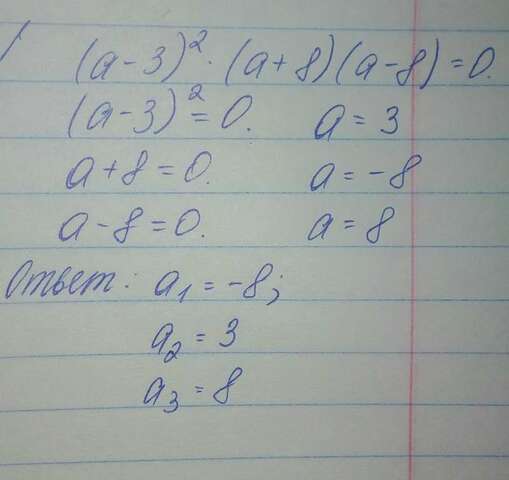 (a-3)². (a+8)(a-8)=0.
(a-3)²=0. a=3
a+8=0. a=-8
a-8=0. a=8
Ответ: a₁=-8;
a₂=3
a₃=8